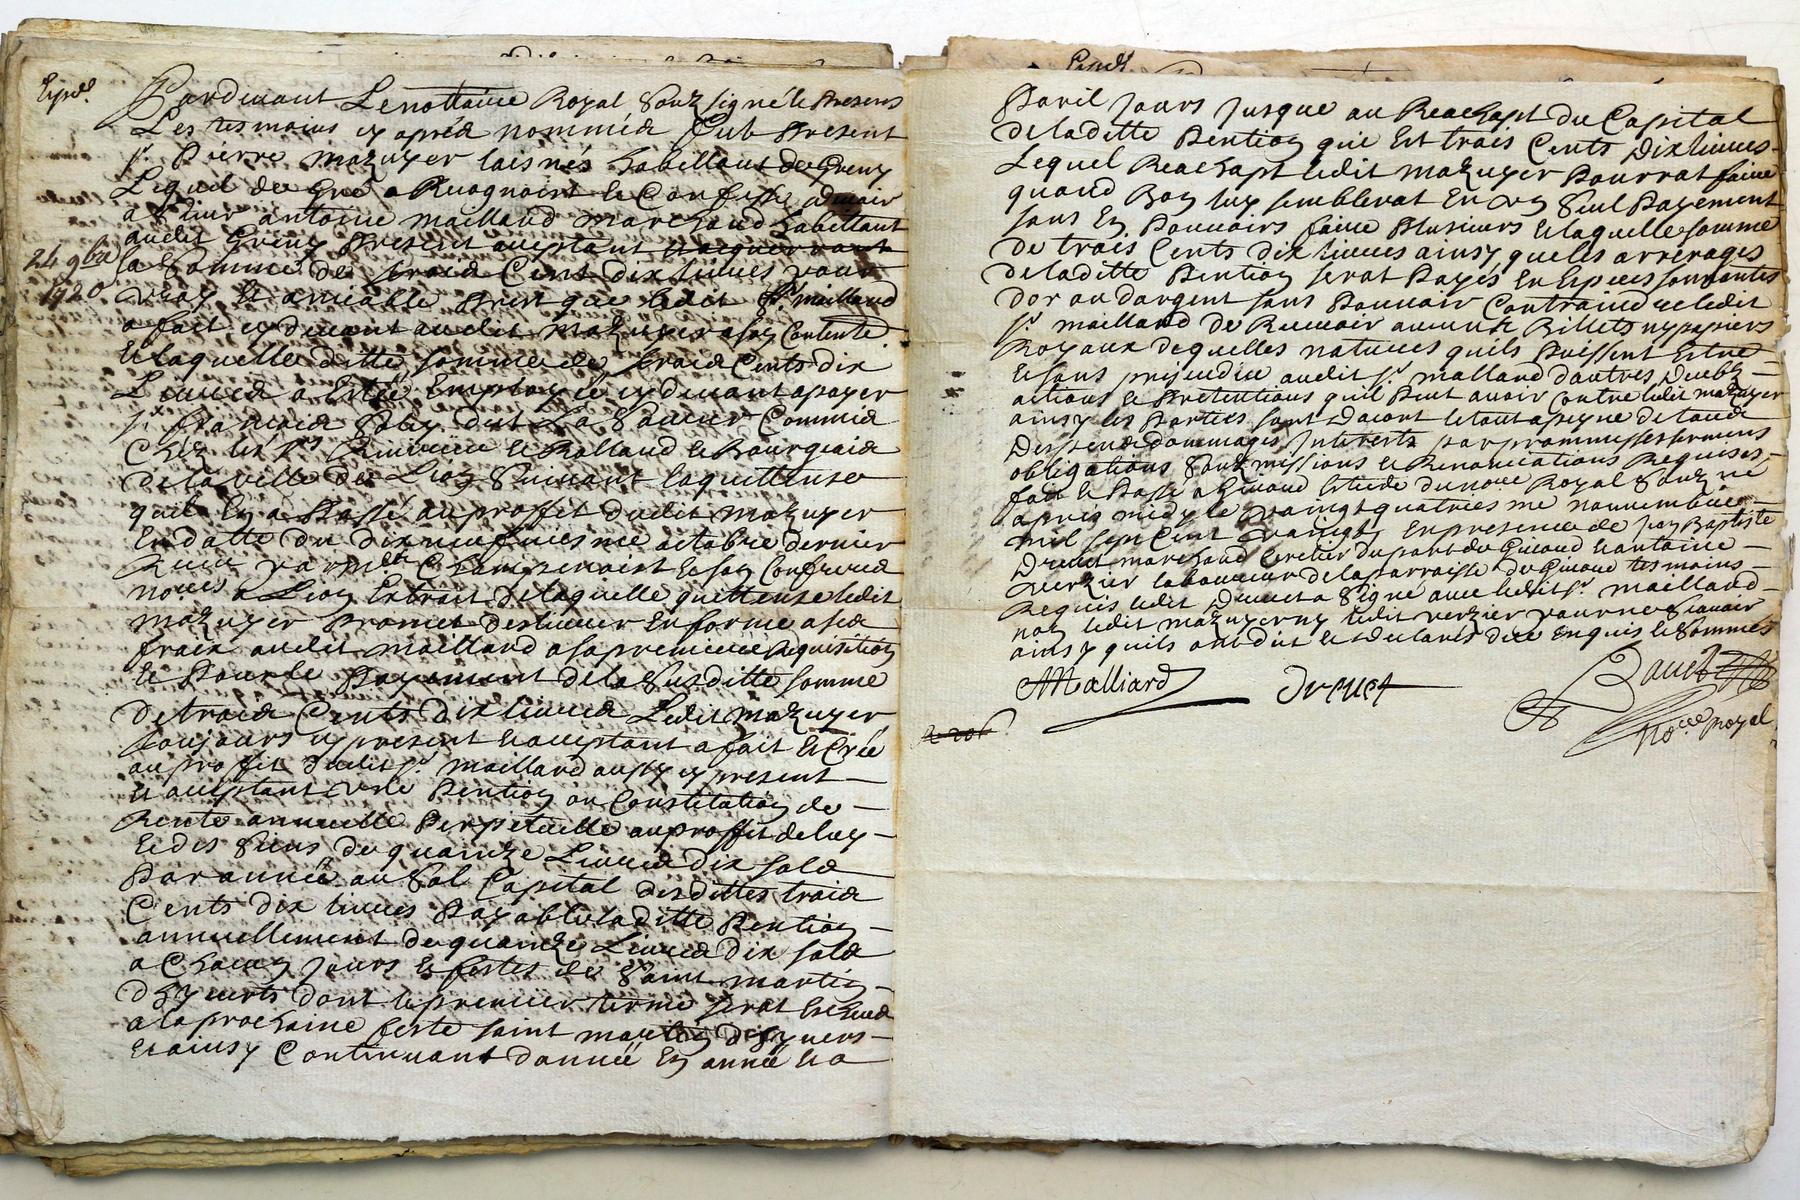 Expéd.
Pardevant Le nottaire Royal Souz signé & Presens
Les tesmoins cy aprés nommés fut Present
sr. Pierre mazuyer laisnés habittant de Greny
Lequel de gré a Recognoist & Confesse devoir
a Sieur antoine mailland marchand habittant
audit Greny Present acceptant
24 9bre 1720
La Somme de trois Cent dix livres pour
vray & amiable Prest que ledit Sr. mailland
a fait cy devant audit Mazuyer a son Contente.
& laquelle ditte somme de trois Cents dix
Livres a Estée Employée cy devant a payer
sr. françois Commis
Chés les Srs & Rolland & Bourgeois
de la ville de Lion Suivant la quittense
quil En a Passé au proffit dudit mazuyer
En datte du dix neufviesme octobre dernier
Receu par & son Confrere
nores a Lion Extrait de laquelle quittense ledit
mazuyer promet deslivrer En forme a ses
frais audit mailland a sa premiere Requisition
& Pour le Payement de la Susditte somme
de trois Cents dix livres Ledit mazuyer
toujours cy present & acceptant a fait & Crée
au proffit dudit sr. mailland aussy cy present
& acceptant une Pention ou Constitution de
Rente annuelle Perpetuelle au proffit de luy
& des Siens de quainze Livres dix sols
Par année au Sol Capital desdittes trois
Cents dix livres Payable la ditte Pention
annuellement de quainze Livres dix sols
a Chacun jours & festes de Saint martin
dhyverts dont le premier terme serat Escheus
a la prochaine feste saint martin dhyvers
& ainsy Continuant dannée En année & a
Pareil jours jusque au Reachapt du Capital
de laditte Pention qui Est trois Cents dix livres
Lequel Reachapt ledit mazuyer Pourrat faire
quand Bon luy semblerat En un Seul Payement
sans En Pouvoirs faire Plusieurs & laquelle somme
de trois Cents dix livres ainsy que les arrerages
de laditte Pention serat Payés En Especes sonnantes
dor ou dargent sans Pouvoir Contraindre ledit
sr. mailland de Recevoir aucuns Billets ny papiers
Royaux de quelles natures quils Puissent Estre
& sans prejudice audit sr. malland dautres
actions & Pretentions quil Peut avoir Contre ledit mazuyer
ainsy les Parties sont Dacort le tout a peyne de tous
Despens dommages Interests par prommesses sermens
obligations Souz missions & Renonciations Requises
fait & Passé a Estude du nore Royal Souz né
apres midy le vaingt quatriesme novembre
mil sept Cent vaingt En presence de jean Baptiste
Drevet marchand & antoine
verzier laboureur de la parroisse de tesmoins
Requis ledit Drevet a Signé avec ledit sr. mailland
non ledit mazuyer ny ledit verzier pour ne Scavoir
ainsy quils ont dit & declarés de ce Enquis & Sommés
AMalliard
Drevet
nore royal